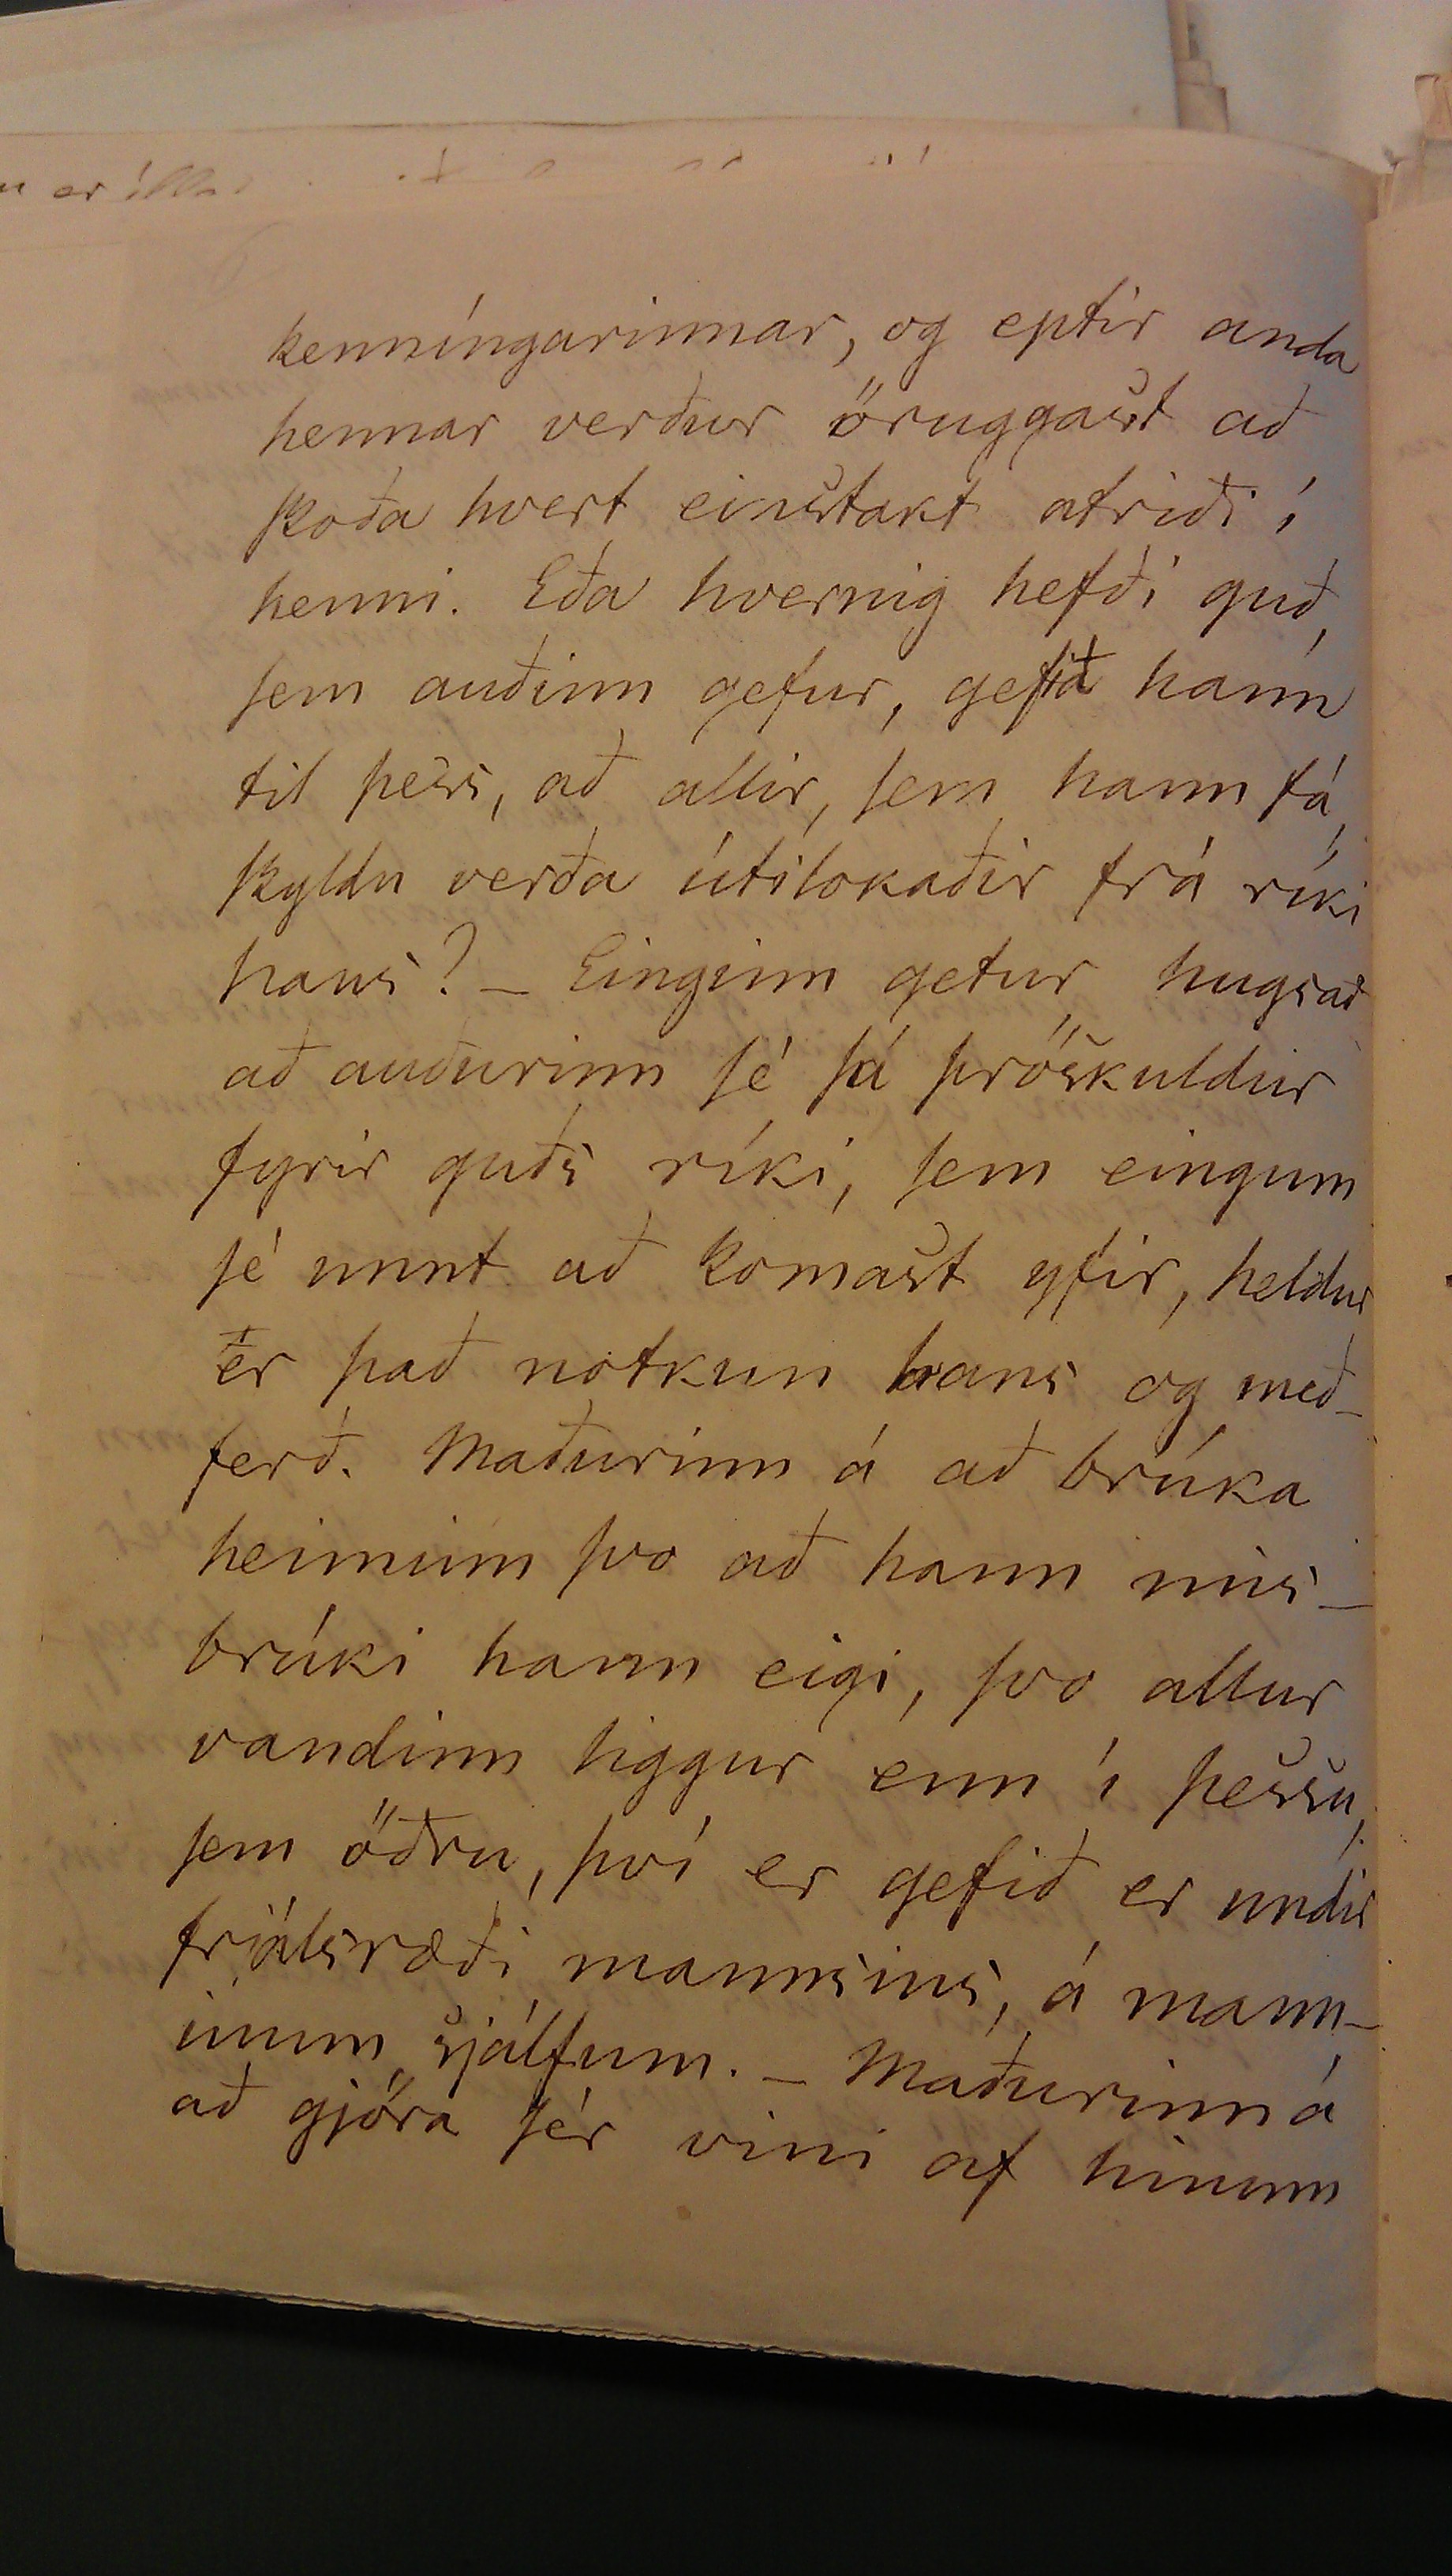 kenníngarinnar, og eptir anda
hennar verður öruggast að
skoða hvert einstakt atriði í
henni. Eða hvernig hefði guð,
sem auðinn gefur, gefið hann
til þess, að allir, sem hann fá,
skyldu verða útilokaðir frá ríki
hans? – Einginn getur hugsað
að auðurinn sé sá þröskuldur
fyrir guðs ríki, sem eingum
sé unnt að komast yfir, heldur
er það notkun hans og með-
ferð. Maðurinn á að brúka
heiminn svo að hann mis-
brúki hann eigi, svo allur
vandinn liggur enn í þessu,
sem öðru, því er gefið er undir
frjálsræði mannsins, á mann-
inum sjálfum. – Maðurinn á
að gjöra sér vini af hinum